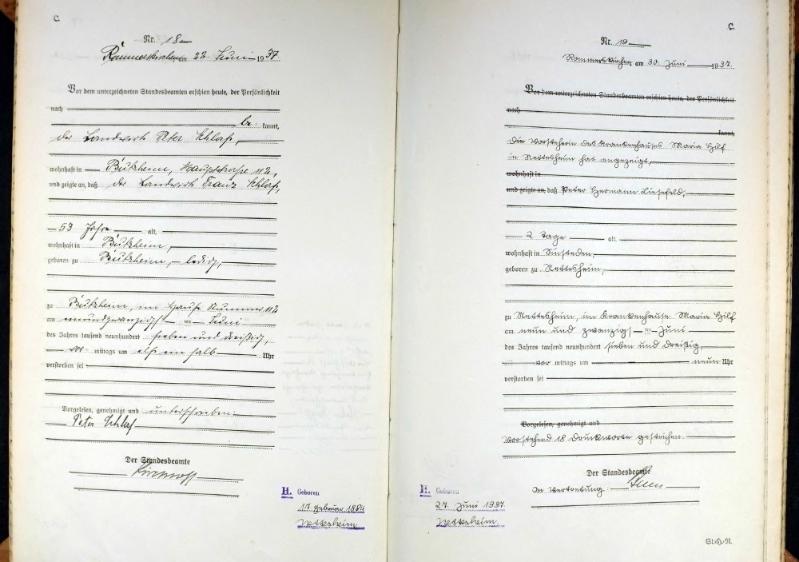 C.
Nr. 18
22 Juni 1937
Vor dem unterzeichneten Standesbeamten erschien heute, der Persönlichkeit
nach be kannt,
der Landwirt Peter Schlaf,
wohnhaft in Bützheim, Hauptstraße 112,
und zeigte an, daß der Landwirt Franz Schlaf,
59 Jahre alt,
wohnhaft in Bützheim,
geboren zu Bützheim, ledig,
zu Bützheim, im Hause Nummer 112
am einundzwanzigsten Juni
des Jahres tausend neunhundert sieben und dreißig,
vor mittags um elf ein halb Uhr
verstorben sei
Vorgelesen, genehmigt und unterschrieben
Peter Schlaf
Der Standesbeamte
H. Geboren
1884
C.
Nr. 19
Rommerskirchen am 30 Juni 1937.
Vor dem unterzeichneten Standesbeamten erschien heute, der Persönlichkeit
nach kannt,
Die Vorsteherin des Krankenhauses Maria Hilf
in Nettesheim hat angezeigt,
wohnhaft in
und zeigte an, daß Peter Hermann Liesefeld,
2 Tage alt,
wohnhaft in Sinsteden,
geboren zu Nettesheim,
zu Nettesheim, im Krankenhause Maria Hilf
am neun und zwanzigst Juni
des Jahres tausend neunhundert sieben und dreißig,
vor mittags um neun Uhr
verstorben sei
Vorgelesen, genehmigt und
Vorstehend 18 Druckworte gestrichen.
Der Standesbeamte
In Vertretung
H. Geboren
27. Juni 1937.
Nettesheim